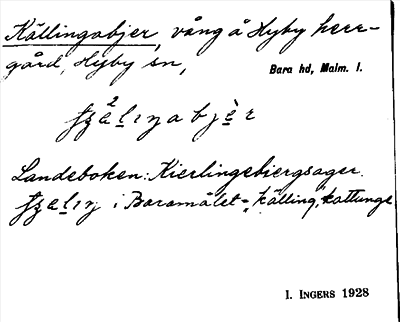 Källingabjer, vång å Hyby herr-
gård, Hyby sn,
Bara hd, Malm. l.
Landeboken: Kierlingebiergsager.
i Baramålet = "källing", kattunge
I. INGERS 1928